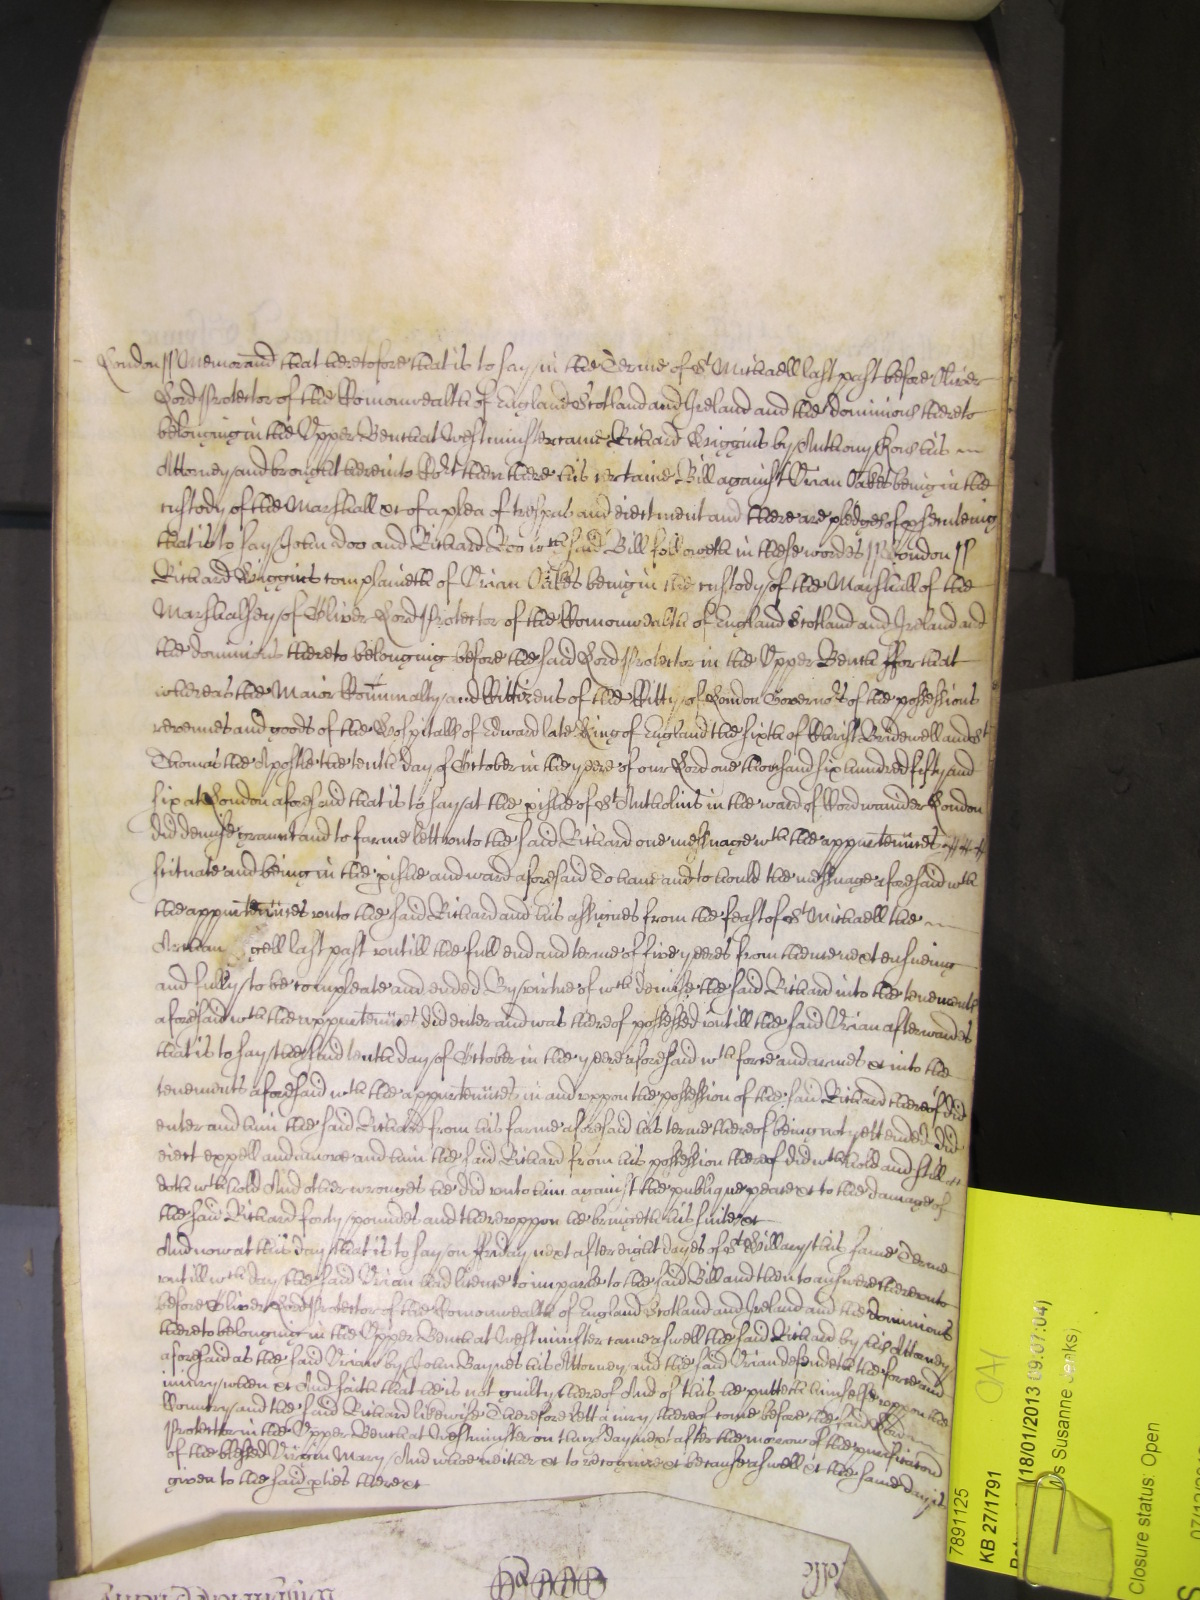 London ss Memorand that heretofore that is to say in the Terme of St Michaell last past before Oliver
Lord Protector of the Comonwealth of England Scotland and Ireland and the dominions thereto
belonging in the Upper Bench at Westminster came Richard Higgins by Anthony his
Attorney and brought here into Cort then there his certaine Bill against Urian Oakes being in the
custody of the Marshall &c of a plea of trespas and eiectment and there are pledges of psecuteing
that is to say John doo and Richard Roo wch said Bill followeth in these wordes ss London ss
Richard Higgins complaineth of Urian Oakes being in the custody of the Marshall of the
Marshalsey of Oliver Lord Protector of the Comonwealth of England Scotland and Ireland and
the dominions thereto belonging before the said Lord Protector in the Upper Bench ffor that
whereas the Maior Comunalty and Cittizens of the Citty of London Governors of the possessions
revenues and goods of the Hospitalls of Edward late King of England the sixth of Christ Bridewell and St
Thomas the Apostle the tenth day of October in the yeere of our Lord one thousand six hundred fifty and
six at London aforesaid that is to say at the pishe of St Antholins in the ward of Cordwainder London
did demise graunt and to farme lett unto the said Richard one messuage wth the appurtennces
scituate and being in the pishe and ward aforesaid To have and to hould the messuage aforesaid wth
the appurtennces unto the said Richard and his assignes from the feast of St Michaell the
Archan gell last past untill the full end and terme of five yeeres from thence next ensueing
and fully to be compleate and ended By virtue of wch demise the said Richard into the tenements
aforesaid wth the appurtennces did enter and was thereof possessed untill the said Urian afterwardes
that is to say the said tenth day of October in the yeere aforesaid wth force and armes &c into the
tenements aforesaid wth the appurtennces in and uppon the possession of the said Richard thereof did
enter and him the said Richard from his farme aforesaid his terme thereof being not yett ended did
eiect expell and amove and him the said Richard from his possession thereof did wthhold and still
doth wthhold And other wronges he did unto him against the publique peace &c to the damage of
the said Richard forty poundes and thereuppon he bringeth his suite &c
And now at this day that is to say on ffriday next after eight dayes of St Hillary this same Terme
untill wch day the said Urian had licence to imparle to the said Bill and then to answere thereunto
before Oliver Lord Protector of the Comonwealth of England Scotland and Ireland and the dominions
thereto belonging in the Upper Bench at Westminster came aswell the said Richard by his Attorney
aforesaid as the said Urian by John Baynes his Attorney and the said Urian defendeth the force and
iniury when &c And saith that he is not guilty thereof And of this he putteth himselfe uppon the
Country and the said Richard likewise Therefore lett a iury thereof come before the said Lord
Protector in the Upper Bench at Westminster on thursday next after the morrow of the purificacon
of the blessed Virgin Mary And who neither &c to recognize &c because aswell &c the same day is
given to the said pties there &c
7891125
KB 27/1791
(18/01/2013 09:07:04)
s Susanne Jenks)
Closure status: Open